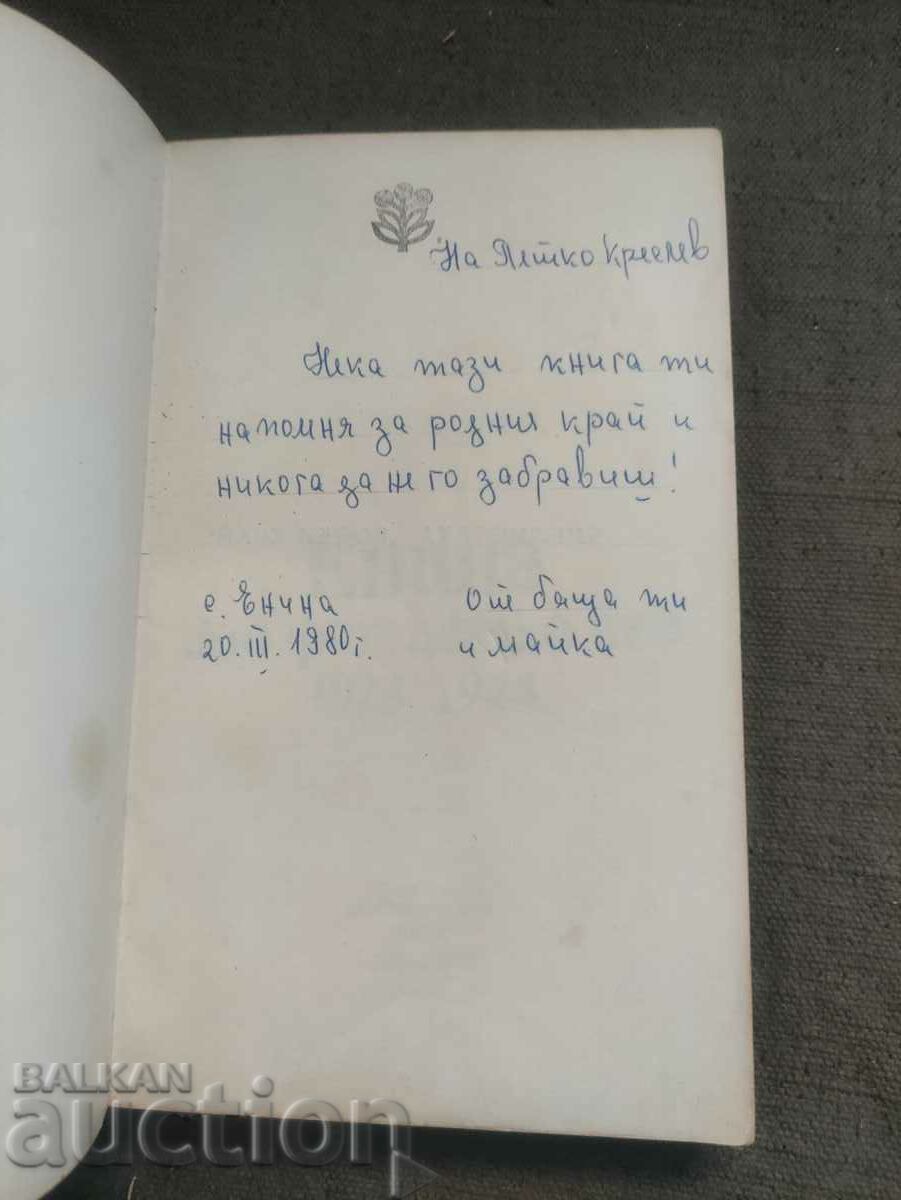 На Петко Кре
Нека тази книга ти
напомня за родния край и
никога да не го забравиш!
с. Енина
20.III.1980г.
От баща ти
и майка
BALKAN
auction